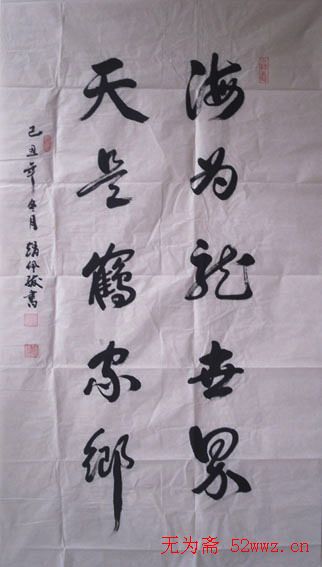 海为龙世界
天是鹤家乡
己丑年
书
无为斋 52wwz.cn